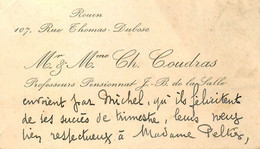 Rouen
107, Rue Thomas-Dubosc
Mr & Mme Ch. Coudras
Professeurs Pensionnat J.-B. de la Salle
envoient par Michel, qu'ils félicitent
de ses succès de trimestre, leurs vœux
bien respectueux à Madame Peltier,